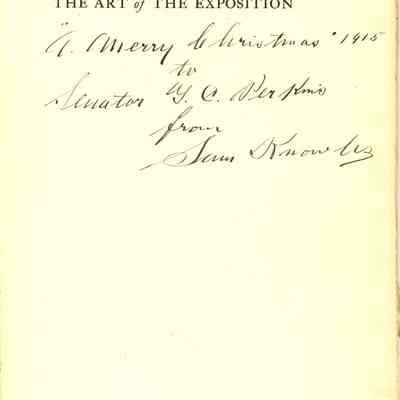 THE ART of THE EXPOSITION
"A Merry Christmas" 1915
to
Senator G. C. Perkins
from
Sam Knowles